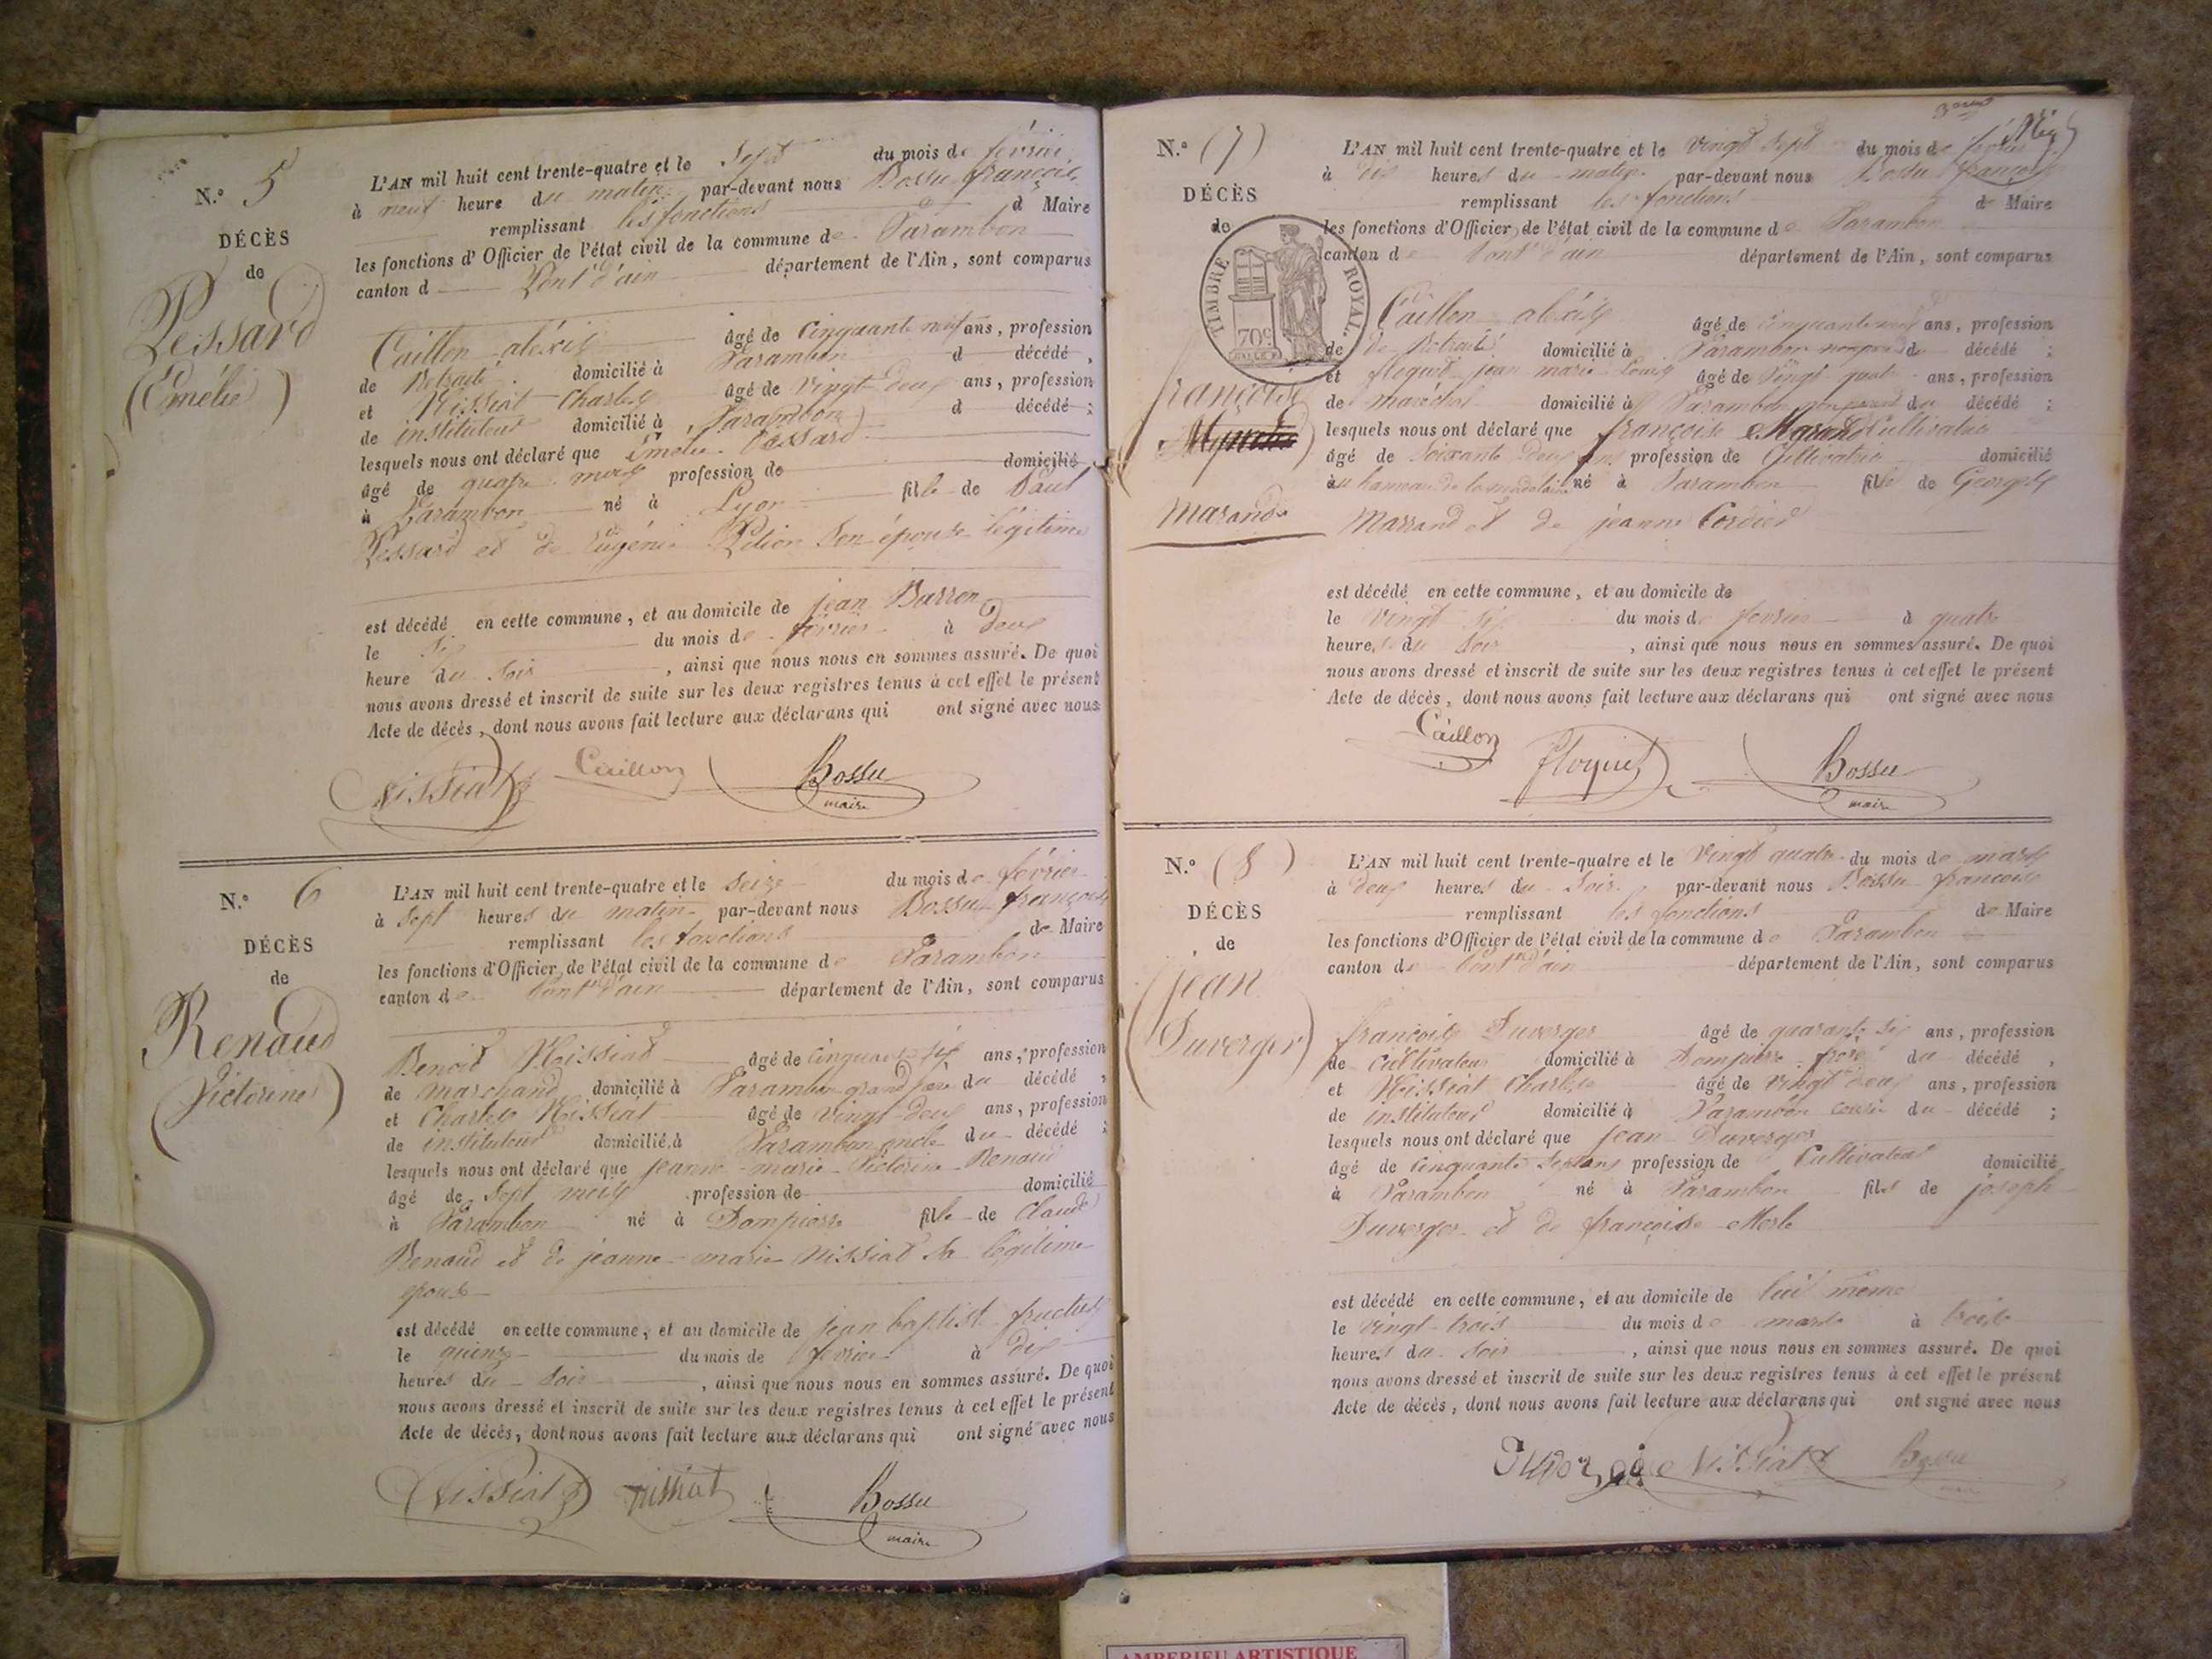 N.o 5
DÉCÈS
de
Pessard
(Emélie)
L'AN mil huit cent trente-quatre et le sept du mois de février
à neuf heure du matin par-devant nous Bossu françois
remplissant les fonctions d Maire
les fonctions d'Officier de l'état civil de la commune de Varambon
canton d Pont d'ain département de l'Ain, sont comparus
Caillon aléxis âgé de cinquante neuf ans, profession
de Retraité domicilié à Varambon d décédé,
et Nissiat Charles âgé de vingt-deux ans, profession
de instituteur domicilié à Varambon d décédé;
lesquels nous ont déclaré que Emélie Pessard
âgé de quatre mois profession de domicilié
à Varambon né à Lyon fille de Paul
Pessard et de Eugénie son épouse légitime
est décédé en cette commune, et au domicile de jean Barron
le six du mois de février à deux
heure du soir, ainsi que nous nous en sommes assuré. De quoi
nous avons dressé et inscrit de suite sur les deux registres tenus à cet effet le présent
Acte de décès, dont nous avons fait lecture aux déclarans qui ont signé avec nous
Nissiat Caillon Bossu
maire
N.o 6
DÉCÈS
de
Renaud
Victorine)
L'AN mil huit cent trente-quatre et le seize du mois de février
à sept heures du matin par-devant nous Bossu françois
remplissant les fonctions de Maire
les fonctions d'Officier de l'état civil de la commune de Varambon
canton de Pont d'ain département de l'Ain, sont comparus
Benoit Nissiat âgé de cinquante six ans, profession
de marchand domicilié à Varambon grand père du décédé,
et Charles Nissiat âgé de vingt-deux ans, profession
de instituteur domicilié à Varambon oncle du décédé;
lesquels nous ont déclaré que jeanne-marie-Victorine Renaud
âgé de sept mois profession de domicilié
à Varambon né à Dompierre fille de Claude
Renaud et de jeanne-marie Nissiat sa légitime
épouse
est décédé en cette commune, et au domicile de jean baptist
le quinze du mois de février à dix
heures du soir, ainsi que nous nous en sommes assuré. De quoi
nous avons dressé et inscrit de suite sur les deux registres tenus à cet effet le présent
Acte de décès, dont nous avons fait lecture aux déclarans qui ont signé avec nous
Nissiat nissiat Bossu
maire
N.o (7)
DÉCÈS
de
TIMBRE ROYAL.
70c
françoise
Marand
L'AN mil huit cent trente-quatre et le vingt sept du mois de février
à dix heures du matin par-devant nous Bossu françois
remplissant les fonctions de Maire
les fonctions d'Officier de l'état civil de la commune de Varambon
canton de Pont d'ain département de l'Ain, sont comparus
Caillon aléxis âgé de cinquante neuf ans, profession
de de Retraité domicilié à Varambon du décédé;
et floquet jean marie Louis âgé de vingt quatre ans, profession
de maréchal domicilié à Varambon du décédé;
lesquels nous ont déclaré que françoise Marand Cultivatrice
âgé de soixante deux ans profession de Cultivatrice domicilié
au hameau de la madelaine né à Varambon fille de Georges
Marrand et de jeanne Cordier
est décédé en cette commune, et au domicile de
le vingt six du mois de fevrier à quatre
heures du soir, ainsi que nous nous en sommes assuré. De quoi
nous avons dressé et inscrit de suite sur les deux registres tenus à cet effet le présent
Acte de décès, dont nous avons fait lecture aux déclarans qui ont signé avec nous
Caillon floquet Bossu
maire
N.o (8)
DÉCÈS
de
(jean
Duverger)
L'AN mil huit cent trente-quatre et le vingt quatre du mois de mars
à deux heures du soir par-devant nous Bossu françois
remplissant les fonctions de Maire
les fonctions d'Officier de l'état civil de la commune de Varambon
canton de Pont d'ain département de l'Ain, sont comparus
françois Duverger âgé de quarante six ans, profession
de cultivateur domicilié à Dompierre frère du décédé,
et Nissiat Charles âgé de vingt deux ans, profession
de instituteur domicilié à Varambon cousin du décédé;
lesquels nous ont déclaré que jean Duverger
âgé de cinquante sept ans profession de Cultivateur domicilié
à Varambon né à Varambon fils de joseph
Duverger et de françoise Merle
est décédé en cette commune, et au domicile de lui même
le vingt-trois du mois de mars à trois
heures du soir, ainsi que nous nous en sommes assuré. De quoi
nous avons dressé et inscrit de suite sur les deux registres tenus à cet effet le présent
Acte de décès, dont nous avons fait lecture aux déclarans qui ont signé avec nous
Nissiat Bossu
AMBERIEU ARTISTIQUE